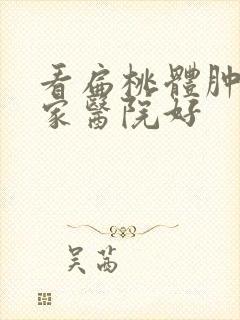 看扁桃體肿
家醫院好
吴茜